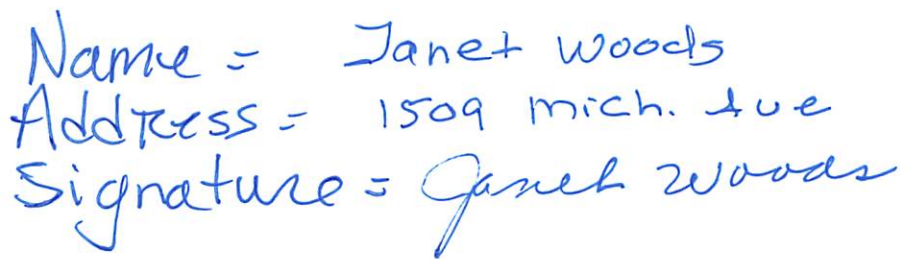 Name = Janet Woods
Address = 1509 Mich. Ave
Signature = Janet Woods